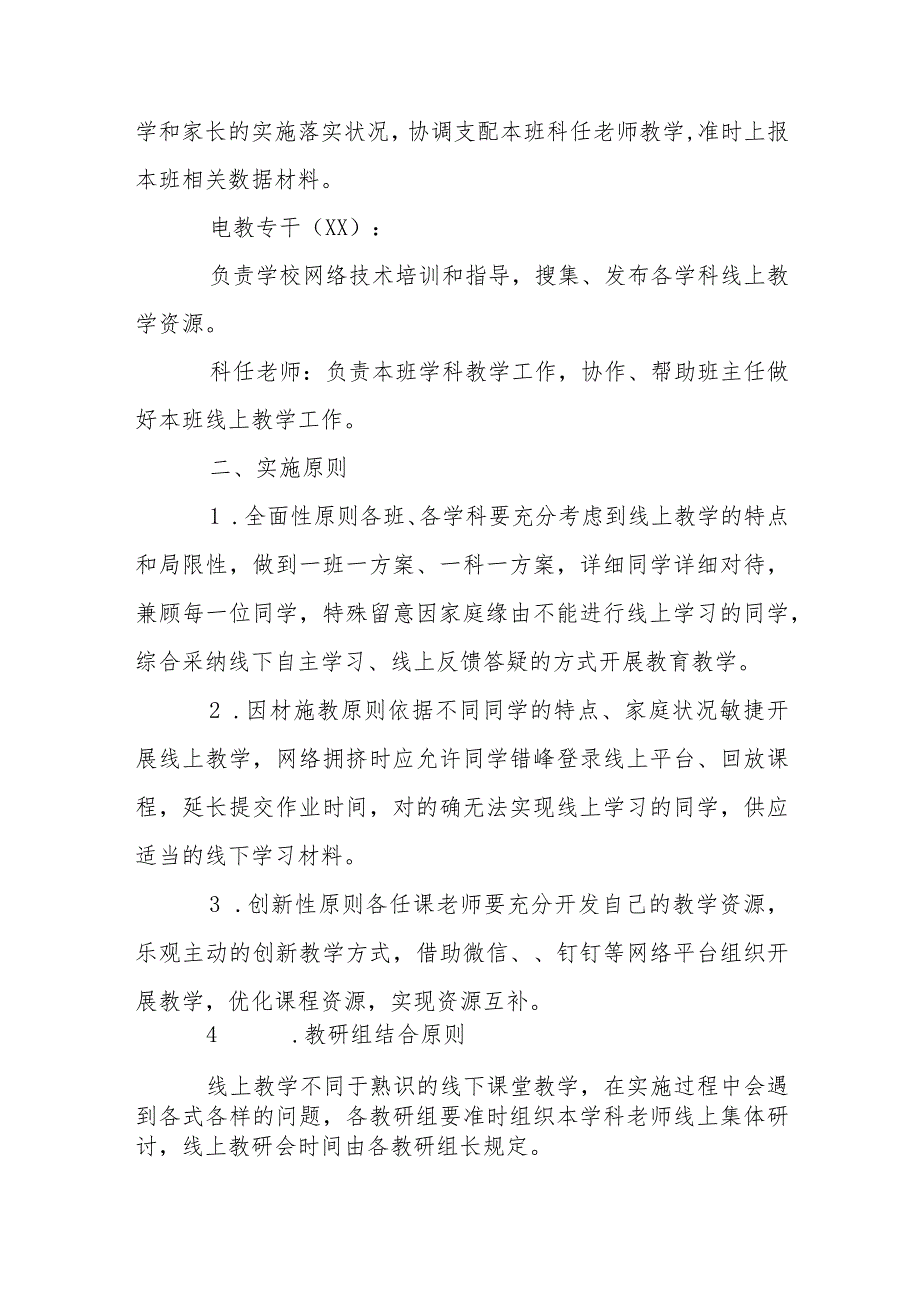 学和家长的实施落实状况，协调支配本班科任老师教学,准时上报
本班相关数据材料。
电教专干（XX）：
负责学校网络技术培训和指导，搜集、发布各学科线上教
学资源。
科任老师：负责本班学科教学工作，协作、帮助班主任做
好本班线上教学工作。
二、实施原则
1 .全面性原则各班、各学科要充分考虑到线上教学的特点
和局限性，做到一班一方案、一科一方案，详细同学详细对待，
兼顾每一位同学，特殊留意因家庭缘由不能进行线上学习的同学，
综合采纳线下自主学习、线上反馈答疑的方式开展教育教学。
2 .因材施教原则依据不同同学的特点、家庭状况敏捷开
展线上教学，网络拥挤时应允许同学错峰登录线上平台、回放课
程，延长提交作业时间，对的确无法实现线上学习的同学，供应
适当的线下学习材料。
3 .创新性原则各任课老师要充分开发自己的教学资源，
乐观主动的创新教学方式，借助微信、、钉钉等网络平台组织开
展教学，优化课程资源，实现资源互补。
4 .教研组结合原则
线上教学不同于熟识的线下课堂教学，在实施过程中会遇
到各式各样的问题，各教研组要准时组织本学科老师线上集体研
讨，线上教研会时间由各教研组长规定。